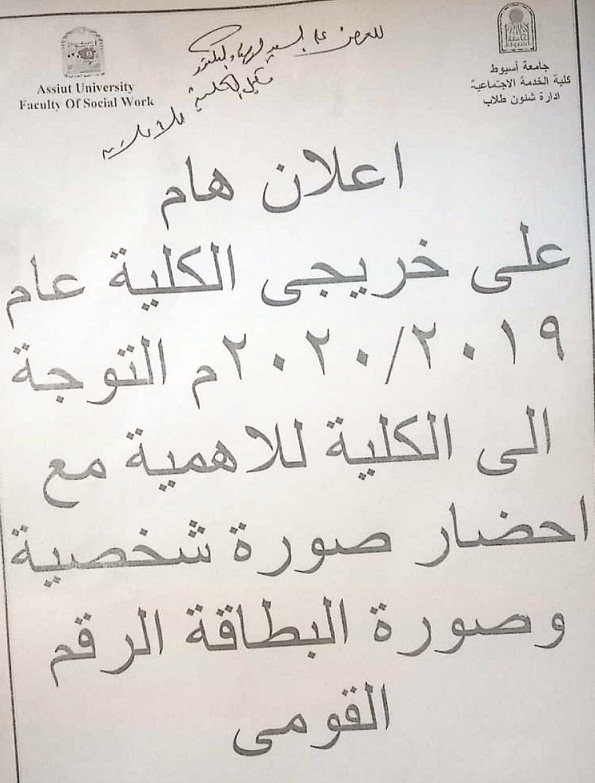 Assiut University
Faculty Of Social Work
جامعة أسيوط
كلية الخدمة الاجتماعية
ادارة شئون طلاب
اعلان هام
على خريجى الكلية عام
٢٠٢٠/٢٠١٩م التوجة
الى الكلية للاهمية مع
احضار صورة شخصية
وصورة البطاقة الرقم
القومى